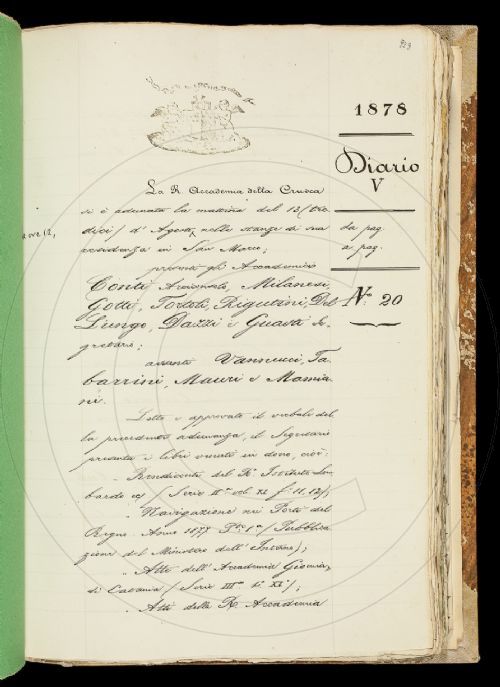 1878
Diario
V
da pag.
a pag.
N.º 20
La R. Accademia della Crusca
si è adunata la mattina del 13 (tre-
dici) d'Agosto, nelle stanze di sua
residenza in San Marco;
presenti gli Accademici
Conti Arciconsolo, Milanesi,
Gotti, Tortoli, Rigutini, Del
Lungo, Dazzi e Guasti Se-
gretario;
assenti Vannucci, Ta-
barrini, Mauri e Mamia-
ni.
Letto e approvato il verbale del-
la precedente adunanza, il Segretario
presenta i libri venuti in dono, cioè:
Rendiconti del R.º Istituto Lom-
bardo ec. (Serie II.ª vol. XI. f. 11, 12);
Navigazione nei Porti del
Regno. Anno 1877. P.te 1.ª (Pubblica-
zione del Ministero dell'Interno);
Atti dell'Accademia Gioenia
di Catania (Serie III.ª t. XI.);
Atti della R. Accademia